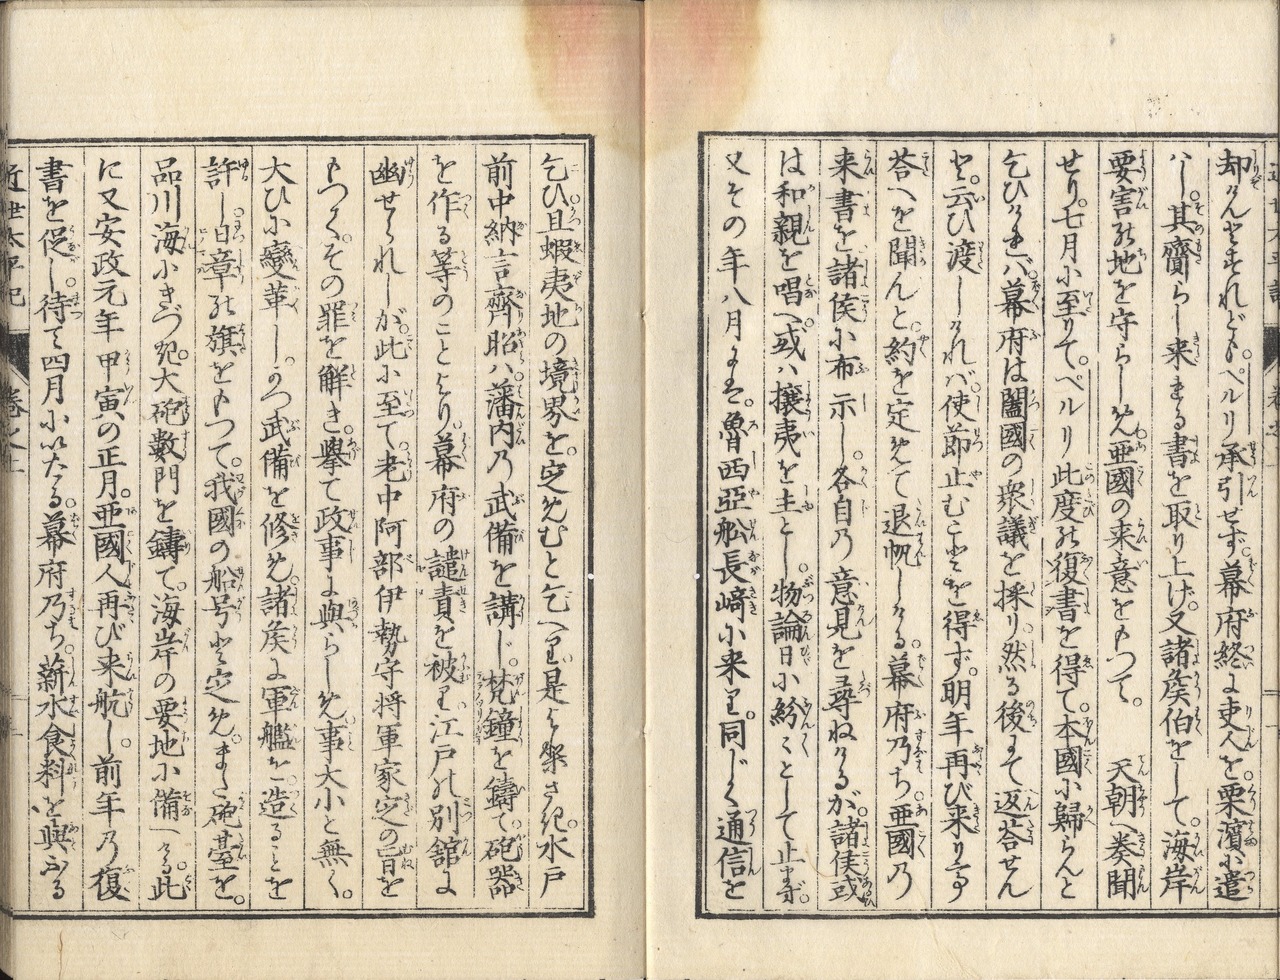 却けんとすれども。ペルリ承引せず。幕府終に吏人を。栗濱に遣
はし。其齎らし来まる書を取り上げ。又諸矦伯をして。海岸
要害の地を守らしめ亜國の来意をもつて。　天朝へ奏聞
せり。七月に至りて。ペルリ此度の復書を得て。本國に歸らんと
乞ひければ。幕府は闔國の衆議を採り然る後にて返荅せん
と。云ひ渡しければ使節止むことを得ず。明年再び来り
荅へを聞んと。約を定めて退帆しける。幕府乃ち亜國の
来書を諸侯に布示し。各自の意見を尋ねけるが。諸侯或
は和親を唱へ。或は攘夷を主とし。物論日に紛々として止まず。
又その年八月には。魯西亞舩長﨑に来り。同じく通信を
乞ひ。且蝦夷地の境界を。定めむと乞へり。是より先水戸
前中納言齊昭は藩内の武備を講じ。梵鐘を鑄て砲器
を作る等のことより。幕府の譴責を被り。江戸の別舘に
幽せられしが。此に至て。老中阿部伊勢守将軍家定の旨を
もつて。その罪を解き。擧て政事に與らしめ。事大小と無く。
大ひに變革し。かつ武備を修め。諸矦に軍艦を造ることを
許し。白章の旗をもつて。我國の船号と定め。また砲臺を。
品川海にきづき。大砲數門を鑄て。海岸の要地に備へける。此
に又安政元年甲寅の正月。亜國人再び来航し。前年の復
書を促し。待て四月にいたる。幕府乃ち。薪水食料を與ふる
近世太平記　巻之上